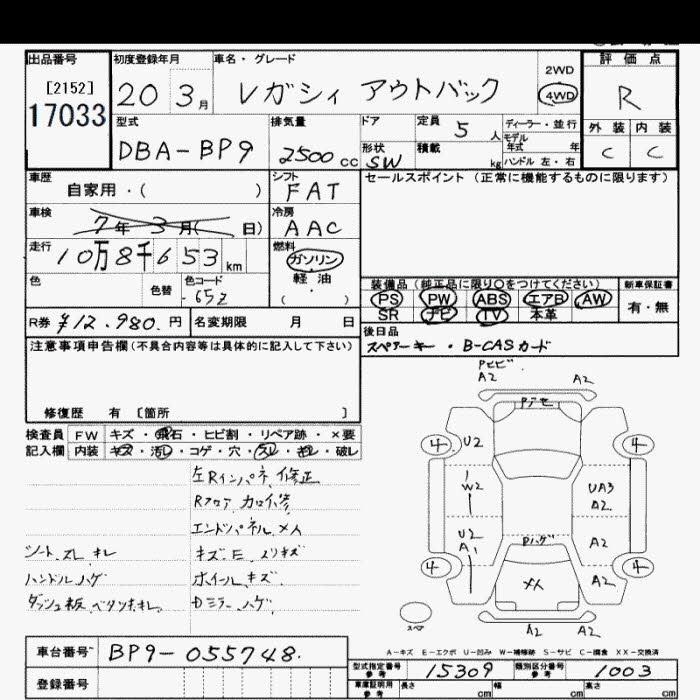 出品番号 初度登録年月 車名・グレード 評価点
[2152] 2WD
17033 20 3月 レガシィ アウトバック 4WD R
型式 排気量 ドア 定員 5 人 ディーラー・並行 外装 内装
モデル
年式 年
DBA-BP9 2500cc 形状 SW 積載 kg ハンドル 左・右 C C
車歴 自家用・( ) シフト FAT セールスポイント(正常に機能するものに限ります)
車検 7年 3月( 日) 冷房 AAC
走行 10万8千653km 燃料 ガソリン
軽油
( )
色 色替 色コード 65Z 装備品(純正品に限り○をつけてください) 新車保証書
PS PW ABS エアB AW 有・無
R券 ¥12,980.円 名変期限 月 日 SR ナビ TV 本革
後日品
注意事項申告欄(不具合内容等は具体的に記入して下さい) スペアーキー・B-CASカード
修復歴 有 [箇所 ]
検査員 FW キズ・飛石・ヒビ割・リペア跡・×要
記入欄 内装 キズ・汚レ・コゲ・穴・スレ・キレ・破レ
左Rインパネ修正
Rフロア カロ修
エンドパネル メ人
シート スレ キレ キズE.スリキズ
ハンドル ハゲ ホイールキズ
ダッシュ板 ベタツキ.キレ Dミラー.ハゲ
A2 A2
4 U2 4
W2 UA3
A2
U2
A1 Dハゲ A2
4 A2 4
スペア A2 A2
A-キズ E-エクボ U-凹み W-補修跡 S-サビ C-腐食 XX-交換済
車台番号 BP9-055748. 型式指定番号 参考 15309 類別区分番号 参考 1003
登録番号 車庫証明用 参考 長さ cm 幅 cm 高さ cm